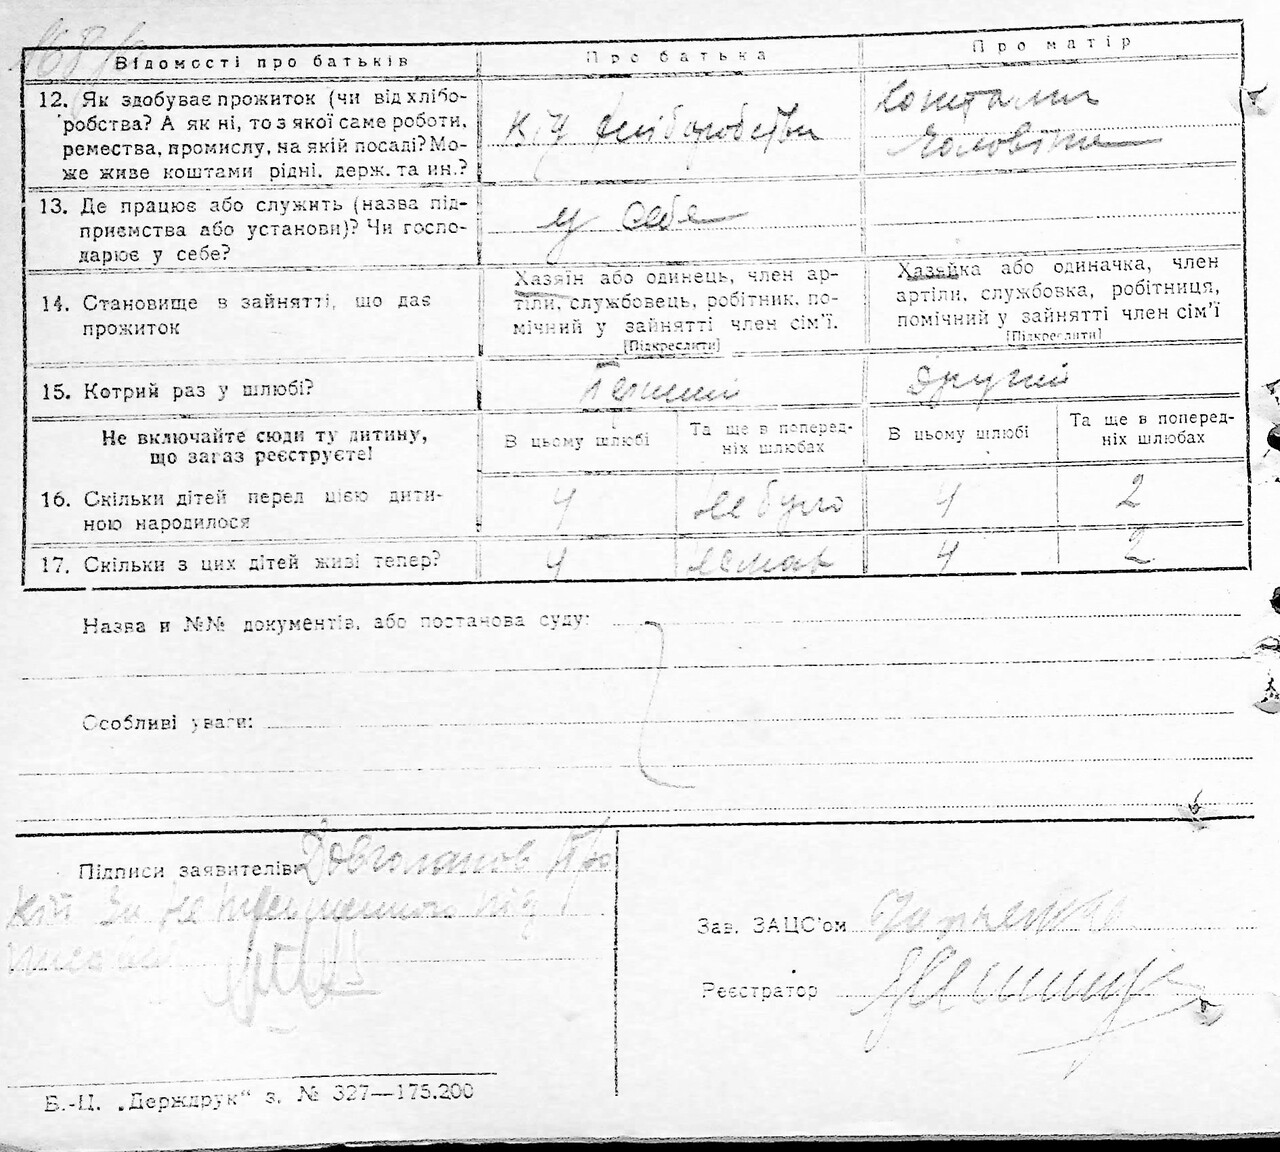 Відомості про батьків
Про батька
Про матір
12. Як здобуває прожиток (чи від хлібо-
робства? А як ні, то з якої саме роботи,
ремества, промислу, на якій посаді? Мо-
же живе коштами рідні, держ. та ин.?
хліборобства
коштами
чоловіка
13. Де працює або служить (назва під-
приємства або установи)? Чи госпо-
дарює у себе?
у себе
14. Становище в зайнятті, що дає
прожиток
Хазяїн або одинець, член ар-
тіли, службовець, робітник, по-
мічний у зайнятті член сім'ї.
[Підкреслити]
Хазяйка або одиначка, член
артіли, службовка, робітниця,
помічний у зайнятті член сім'ї
[Підкреслити]
15. Котрий раз у шлюбі?
Первий
Другий
Не включайте сюди ту дитину,
що зараз реєструєте!
В цьому шлюбі
Та ще в поперед-
ніх шлюбах
В цьому шлюбі
Та ще в поперед-
ніх шлюбах
16. Скільки дітей перед цією дити-
ною народилося
4
не було
4
2
17. Скільки з цих дітей живі тепер?
4
немає
4
2
Назва и №№ документів, або постанова суду:
Особливі уваги:
Підписи заявителів
За
під
Зав. ЗАЦС'ом
Реєстратор
Б.-Ц. „Держдрук“ з. № 327—175.200